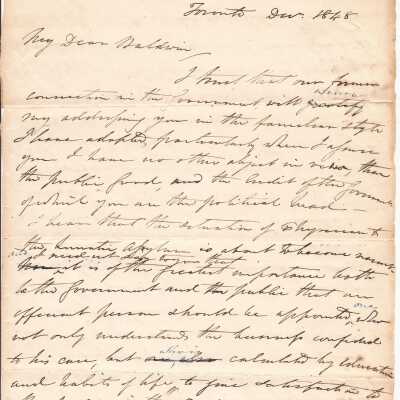 Toronto Decr. 1848
My Dear Baldwin
I trust that our former
connection in the Government will justify
my addressing you in the familiar style
I have adopted, particularly when I assure
you I have no other object in view, than
the public good, and the credit of the Governmt
of which you are the political head —
I hear that the situation of Physician to
the Lunatic Asylum is about to become vacant
and I need not say to you that
it is of the greatest importance both
to the Government and the public that an
efficient person should be appointed, one who
not only understands the business confided
to his care, but calculated by education
and habits of life, to give satisfaction to